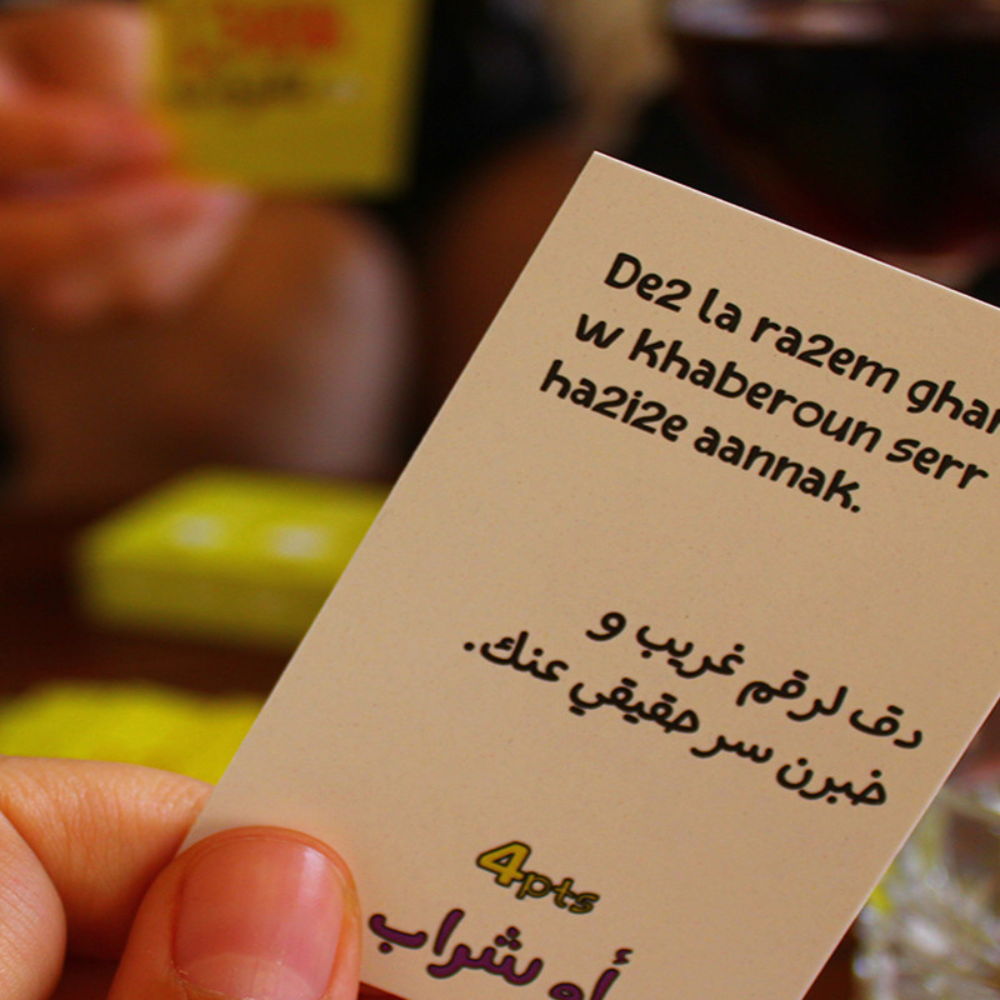 De2 la ra2em ghar
w khaberoun serr
ha2i2e aannak.
دق لرقم غريب و
خبرن سر حقيقي عنك.
4pts
أو شراب